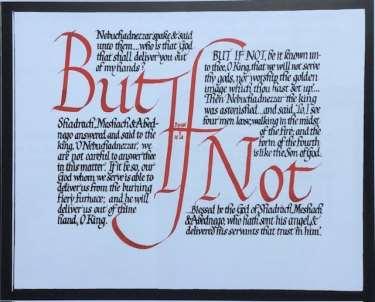 Nebuchadnezzar spake & said
unto them...who is that God
that shall deliver you out
of my hands?
But
Shadrach, Meshach, & Abed-
nego answered and said to the
king, O Nebuchadnezzar, we
are not careful to answer thee
in this matter. If it be so, our
God whom we serve is able to
deliver us from the burning
fiery furnace; and he will
deliver us out of thine
hand, O King.
If
BUT IF NOT, be it known un-
to thee, O King, that we will not serve
thy gods, nor worship the golden
image which thou hast set up...
Then Nebuchadnezzar the king
was astonished...and said, Lo, I see
four men lose, walking in the midst
of the fire; and the
form of the fourth
is like the Son of God.
Not
...Blessed be the God of Shadrach, Meshach,
& Abednego, who hath sent his angel, &
delivered his servants that trust in him.